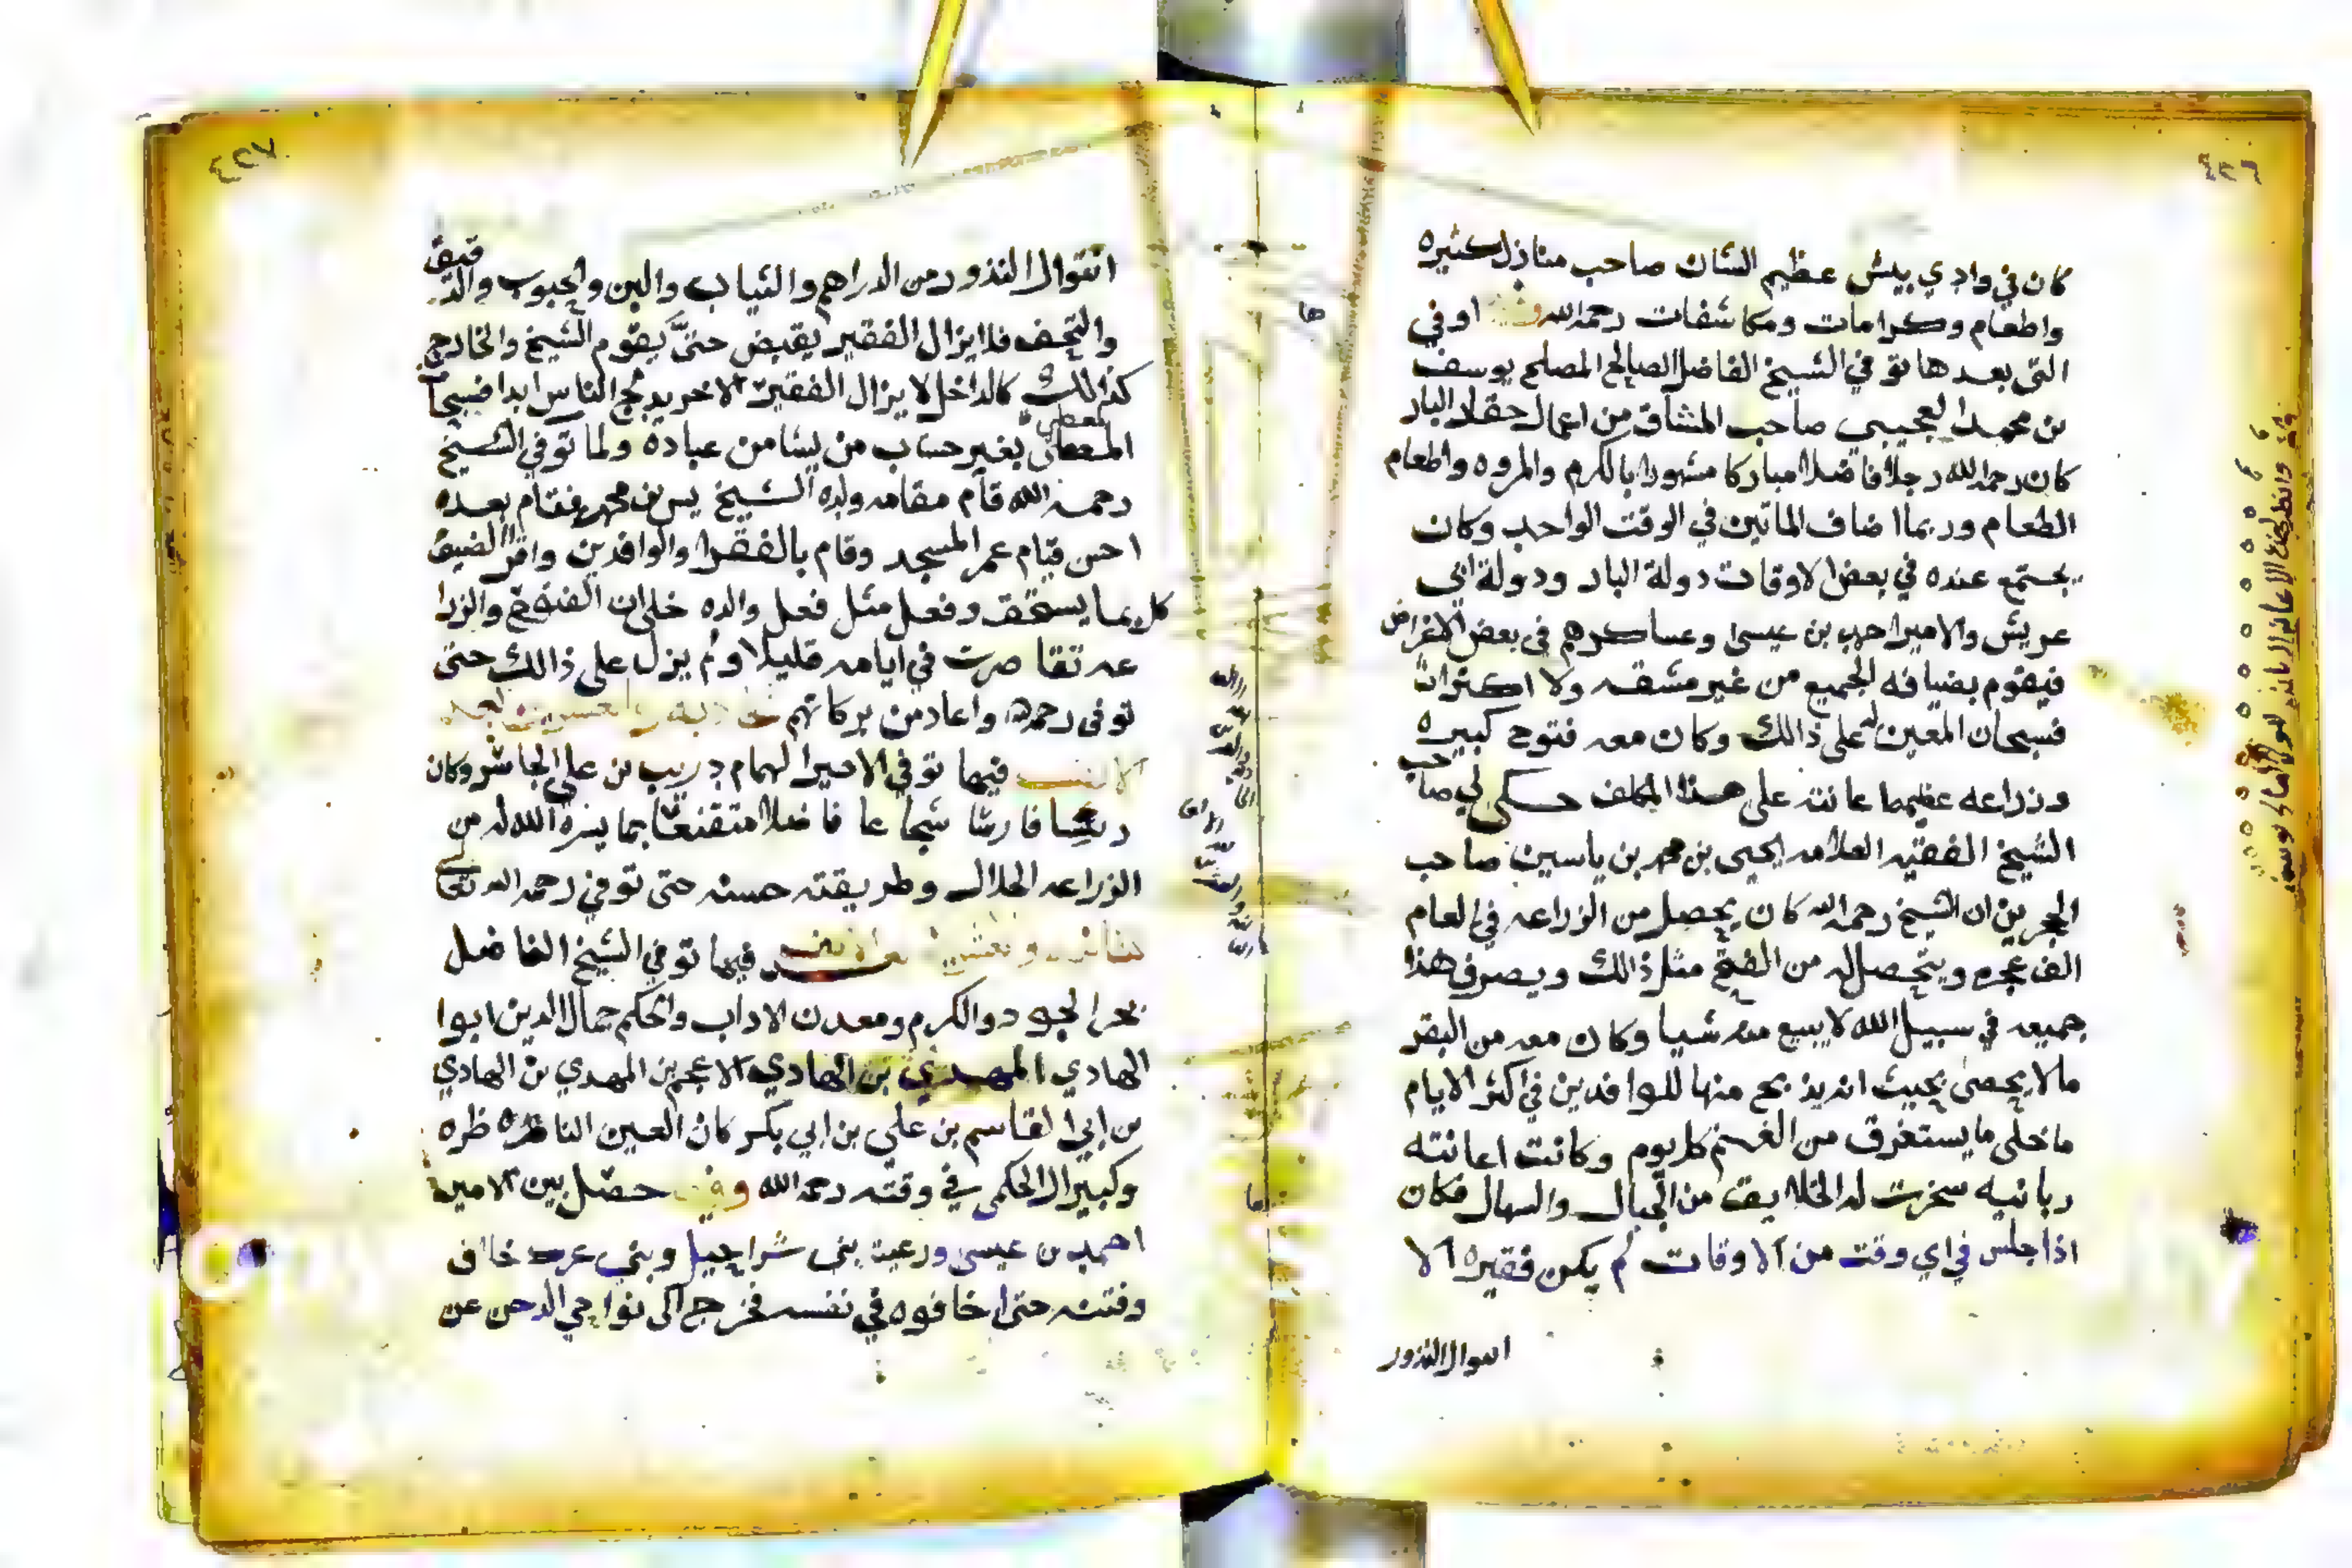 ٤٢٦
كان في وادي بيش عظيم الشان صاحب منازل كثيره
واطعام وكرامات ومكاشفات رحمه الله اوفي
التي بعدها توفي الشيخ الفاضل الصالح المصلح يوسف
بن محمد العجيبي صاحب المشاق من اعمال حقلا البار
كان رحمه الله رجلا فاضلا مباركا مشهورا بالكرم والمروه واطعام
الطعام وربما اضاف الماتين في الوقت الواحد وكان
يجتمع عنده في بعض الاوقات دولة البار ودولة ابي
عريش والامير احمد بن عيسى وعساكرهم في بعض الاغراض
فيقوم بضيافه الجميع من غير مشقه ولا اكتراث
فسبحان المعين له على ذالك وكان معه فتوح كبيره
وزراعه عظيما عانته على هذا المكلف حكى لي صاحب
الشيخ الفقيه العلامه يحيى بن محمد بن ياسين صاحب
الحجرين ان الشيخ رحمه الله كان يحصل من الزراعه في العام
الف عجره ويتحصل له من الفتح مثل ذالك ويصرف هذا
جميعه في سبيل الله لا يبيع منه شيا وكان معه من البقر
مالا يحصى بحيث انه يذبح منها للوافدين في اكثر الايام
ماخلى ما يستغرق من الغنم كل يوم وكانت اعانته
ربانيه سخرت له الخلايق من الجبال والسهال فكان
اذا جلس في اي وقت من الاوقات لم يكن فقيره الا
اموال النذور
٤٢٧
اموال النذور من الدراهم والثياب والبن والحبوب والدقيق
والتحف فلا يزال الفقير يقبض حتى يقوم الشيخ والخارج
كذالك كالداخل لا يزال الفقير الاخر يدمج الناس ابدا فسبحان
المعطي بغير حساب من يشا من عباده ولما توفي الشيخ
رحمه الله قام مقامه ولده الشيخ يس بن محمد فقام بعده
احسن قيام عمر المسجد وقام بالفقرا والوافدين واقرا الضيف
كل بما يستحق وفعل مثل فعل والده خلا ان الفتوح والزرا
عه تقاصرت في ايامه قليلا ولم يزل على ذالك حتى
توفى رحمه واعاد من بركاتهم
الالف فيها توفي الامير الهمام دريب بن علي الجاشر وكان
رئيسا فارسا شجاعا فاضلا متقنعا بما يسره الله له من
الزراعه الحلال وطريقته حسنه حتى توفي رحمه الله تعالى
فيها توفي الشيخ الفاضل
بحر الجود والكرم ومعدن الاداب والحكم جمال الدين ابوا
الهادي المهدي بن الهادي الاعجم بن المهدي بن الهادي
بن ابي القاسم بن علي بن ابي بكر كان العين الناظره
وكبير ال الحكمي في وقته رحمه الله وفي حصل بين الامير
احمد بن عيسى ورعيته بني شراحيل وبني عرد خلاف
وفتنه حتى اخافوه في نفسه فخرج الى نواحي الدحن عن